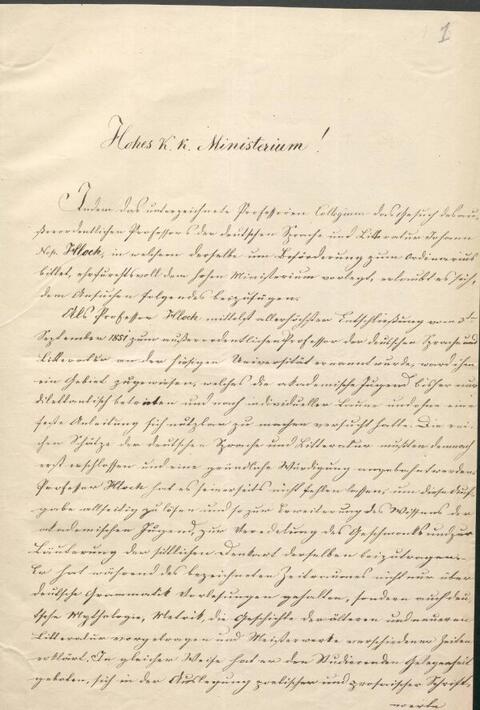 1
Hohes k. k. Ministerium!
Indem das unterzeichnete Professoren Collegium das Gesuch des au-
ßerordentlichen Professors der deutschen Sprache und Litteratur Johann
Nep. Kloch, in welchem derselbe um Beförderung zum Ordinarius
bittet, ehrfurchtsvoll dem hohen Ministerium vorlegt, erlaubt es sich,
dem Ansuchen folgendes beizufügen.
Als Professor Kloch mittelst allerhöchster Entschließung vom
September 1851 zum außerordentlichen Professor der deutschen Sprache und
Litteratur an der hiesigen Universität ernannt wurde, ward ihm
ein Gebiet zugewiesen, welches die akademische Jugend bisher nur
dilettantisch betreten und nach individueller Laune und ohne eine
feste Anleitung sich nutzbar zu machen versucht hatte. Die rei-
chen Schätze der deutschen Sprache und Litteratur mußten demnach
erst erschlossen und eine gründliche Würdigung angebahnt werden.
Professor Kloch hat es seinerseits nicht fehlen lassen, um diese Auf-
gabe allseitig zu lösen und so zur Erweiterung des Wissens der
akademischen Jugend, zur Veredelung des Geschmacks und zur
Läuterung der sittlichen Denkart derselben beizutragen.
Er hat während des bezeichneten Zeitraumes nicht nur über
deutsche Grammatik Vorlesungen gehalten, sondern auch deu-
tsche Mythologie, Metrik, die Geschichte der älteren und neueren
Litteratur vorgetragen und Meisterwerke verschiedener Zeiten
erklärt. In gleicher Weise hat er den Studierenden Gelegenheit
geboten, sich in der Auslegung poetischer und prosaischer Schrift-
werke